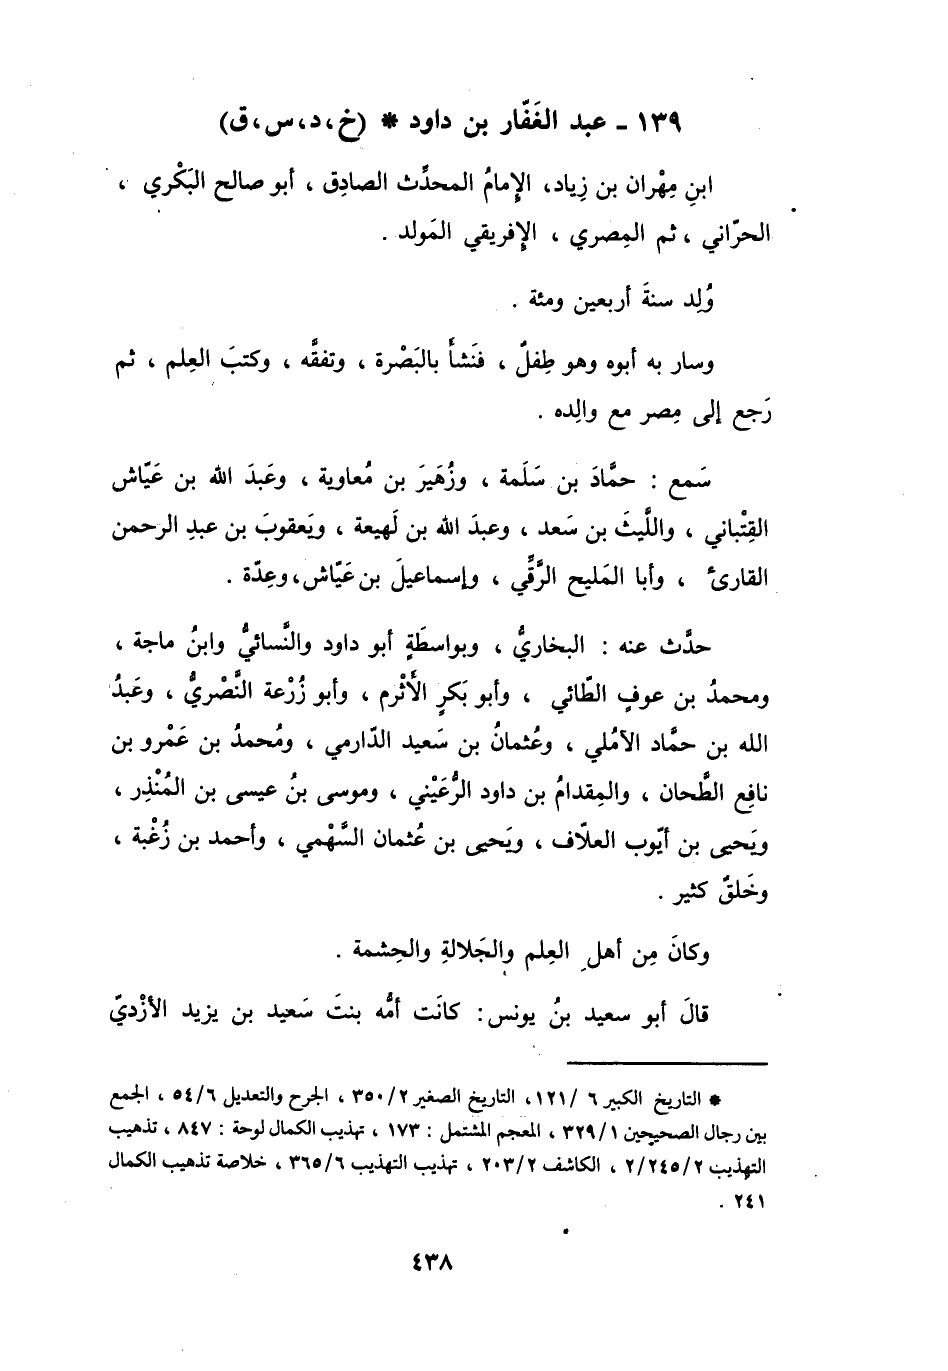 ١٣٩ ـ عبد الغَفَّار بن داود * (خ، د، س، ق)
ابنِ مِهْران بن زِياد، الإِمامُ المحدِّث الصادِق ، أبو صالح البَكْري ،
الحرّاني ، ثم المِصري ، الإِفريقي المَولد .
وُلِد سنةَ أربعين ومئة .
وسار به أبوه وهو طِفلٌ ، فنَشأَ بالبَصْرة ، وتفقَّه ، وكتبَ العِلم ، ثم
رَجع إلى مِصر مع والِده .
سَمع : حمَّادَ بن سَلَمة ، وزُهَيرَ بن مُعاوية ، وعَبدَ الله بن عَيّاش
القِتْباني ، واللَّيثَ بن سَعد ، وعبدَ الله بن لَهيعة ، ويَعقوبَ بن عبدِ الرحمن
القارئ ، وأبا المَليح الرَّقِّي ، وإسماعيلَ بن عَيّاش، وعِدّة .
حدَّث عنه : البخاريُّ ، وبواسطَةٍ أبو داود والنَّسائيُّ وابنُ ماجة ،
ومحمدُ بن عوفٍ الطّائي ، وأبو بَكرٍ الأَثْرم ، وأبو زُرْعة النَّصْريُّ ، وعَبدُ
الله بن حمَّاد الآمُلي ، وعُثمانُ بن سَعيد الدّارمي ، ومُحمدُ بن عَمْرو بن
نافِع الطَّحان ، والمِقدامُ بن داود الرُّعَيْني ، وموسى بنُ عيسى بن المُنْذِر ،
ويَحيى بن أيّوب العلاّف ، ويَحيى بن عُثمان السَّهْمي ، وأحمد بن زُغْبة ،
وخَلقٌ كثير .
وكانَ مِن أهلِ العِلم والجَلالةِ والحِشمة .
قالَ أبو سعيد بنُ يونس: كانَت أمُّه بنتَ سَعيد بن يزيد الأزْديّ
* التاريخ الكبير ٦ /١٢١، التاريخ الصغير ٣٥٠/٢ ، الجرح والتعديل ٥٤/٦ ، الجمع
بين رجال الصحيحين ٣٢٩/١ ، المعجم المشتمل : ١٧٣ ، تهذيب الكمال لوحة : ٨٤٧ ، تذهيب
التهذيب ٢/٢٤٥/٢ ، الكاشف ٢٠٣/٢ ، تهذيب التهذيب ٣٦٥/٦ ، خلاصة تذهيب الكمال
٢٤١ .
٤٣٨